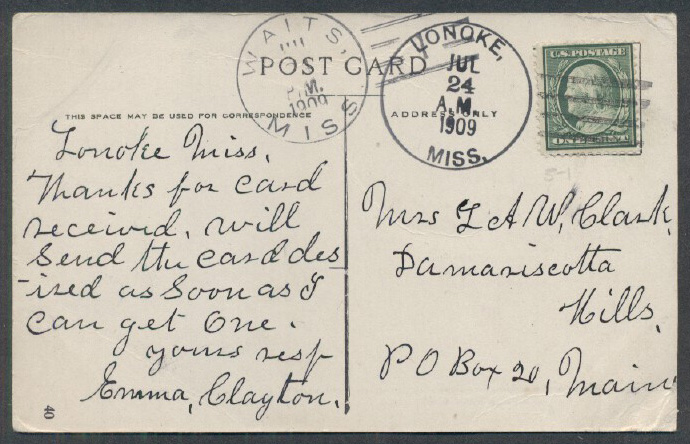 WAITS,
JUL
P.M.
1909
MISS
LONOKE,
JUL
24
A.M.
1909
MISS.
U.S. POSTAGE
ONE CENT
POST CARD
THIS SPACE MAY BE USED FOR CORRESPONDENCE
ADDRESS ONLY
5-1
Lonoke Miss.
Thanks for card
received, will
Send the card des
-ired as Soon as I
can get One.
yours resp
Emma, Clayton.
Mrs L A W, Clark,
Damariscotta
Mills,
PO Box 20, Maine
40